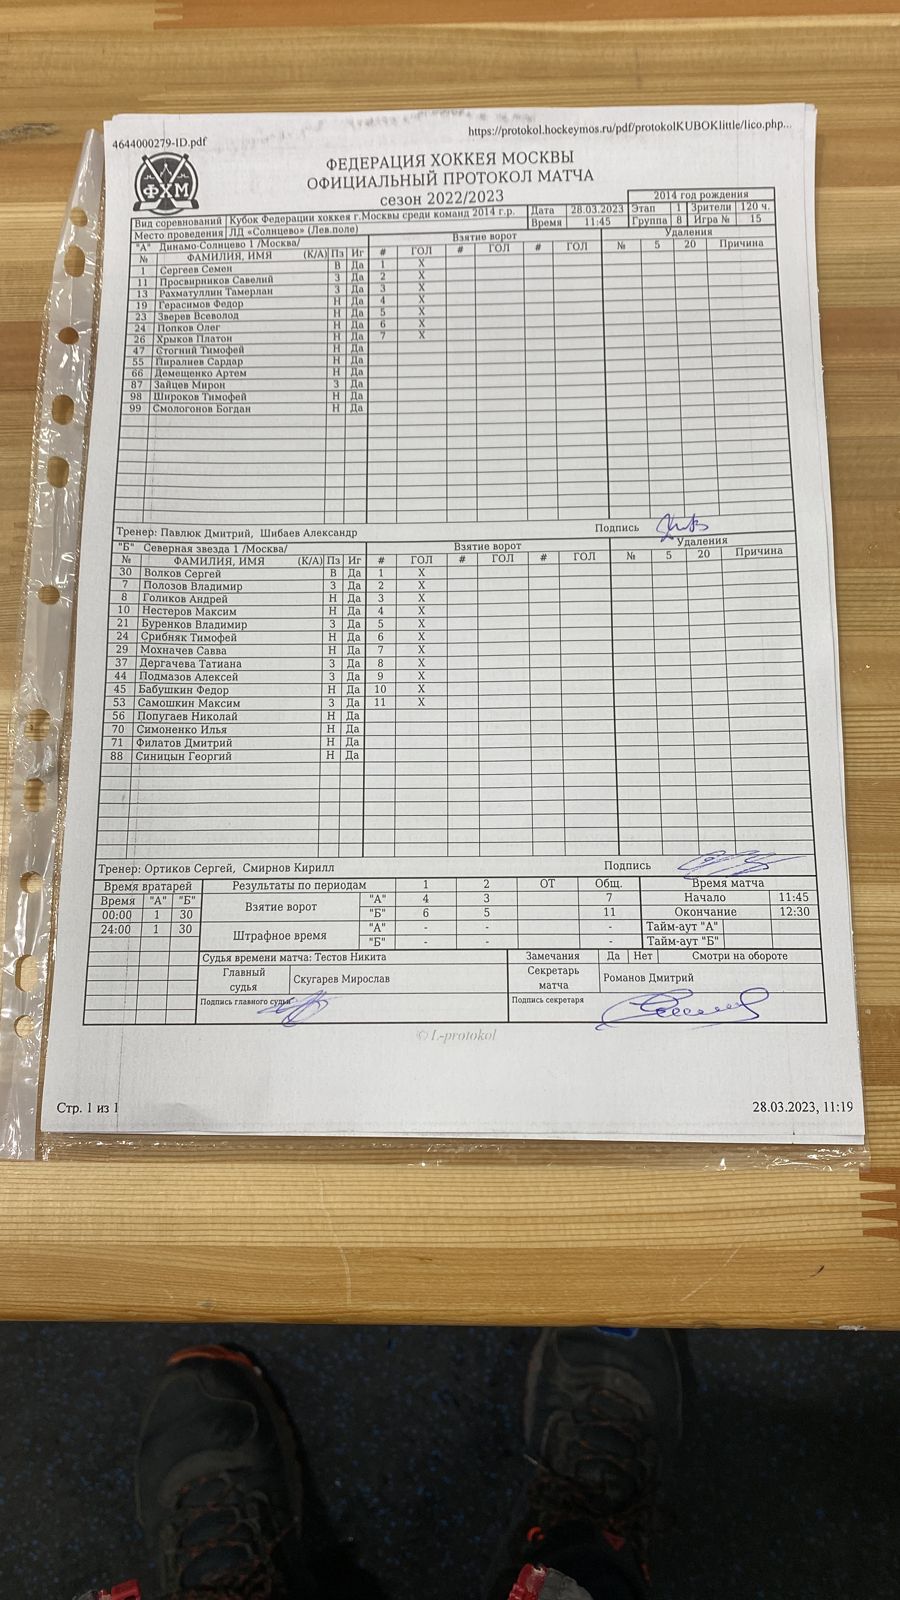 4644000279-ID.pdf https://protokol.hockeymos.ru/pdf/protokolKUBOKlittle/lico.php...
ФХМ
ФЕДЕРАЦИЯ ХОККЕЯ МОСКВЫ
ОФИЦИАЛЬНЫЙ ПРОТОКОЛ МАТЧА
сезон 2022/2023
2014 год рождения
Вид соревнований Кубок Федерации хоккея г.Москвы среди команд 2014 г.р. Дата 28.03.2023 Этап 1 Зрители 120 ч.
Место проведения ЛД «Солнцево» (Лев.поле) Время 11:45 Группа 8 Игра № 15
"А" Динамо-Солнцево 1 /Москва/ Взятие ворот Удаления
№ ФАМИЛИЯ, ИМЯ (К/А) Пз Иг # ГОЛ # ГОЛ # ГОЛ № 5 20 Причина
1 Сергеев Семен В Да 1 X
11 Просвирников Савелий З Да 2 X
13 Рахматуллин Тамерлан З Да 3 X
19 Герасимов Федор Н Да 4 X
23 Зверев Всеволод Н Да 5 X
24 Попков Олег Н Да 6 X
26 Хрыков Платон Н Да 7 X
47 Стогний Тимофей Н Да
55 Пиралиев Сардар Н Да
66 Демещенко Артем Н Да
87 Зайцев Мирон З Да
98 Широков Тимофей Н Да
99 Смологонов Богдан Н Да
Тренер: Павлюк Дмитрий, Шибаев Александр Подпись
"Б" Северная звезда 1 /Москва/ Взятие ворот Удаления
№ ФАМИЛИЯ, ИМЯ (К/А) Пз Иг # ГОЛ # ГОЛ # ГОЛ № 5 20 Причина
30 Волков Сергей В Да 1 X
7 Полозов Владимир З Да 2 X
8 Голиков Андрей Н Да 3 X
10 Нестеров Максим Н Да 4 X
21 Буренков Владимир З Да 5 X
24 Срибняк Тимофей Н Да 6 X
29 Мохначев Савва Н Да 7 X
37 Дергачева Татиана З Да 8 X
44 Подмазов Алексей З Да 9 X
45 Бабушкин Федор Н Да 10 X
53 Самошкин Максим З Да 11 X
56 Попугаев Николай Н Да
70 Симоненко Илья Н Да
71 Филатов Дмитрий Н Да
88 Синицын Георгий Н Да
Тренер: Ортиков Сергей, Смирнов Кирилл Подпись
Время вратарей Результаты по периодам 1 2 ОТ Общ. Время матча
Время "А" "Б" Взятие ворот "А" 4 3 7 Начало 11:45
00:00 1 30 "Б" 6 5 11 Окончание 12:30
24:00 1 30 Штрафное время "А" - - - Тайм-аут "А"
"Б" - - - Тайм-аут "Б"
Судья времени матча: Тестов Никита Замечания Да Нет Смотри на обороте
Главный судья Скугарев Мирослав Секретарь матча Романов Дмитрий
Подпись главного судьи Подпись секретаря
© L-protokol
Стр. 1 из 1 28.03.2023, 11:19